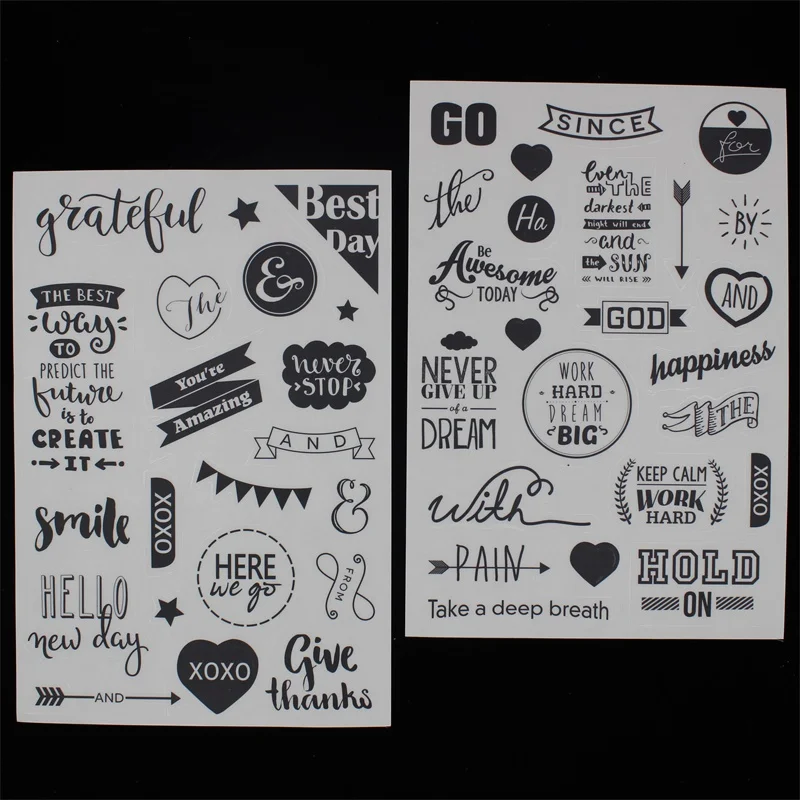 grateful
Best
Day
&
The
THE BEST
way
TO
PREDICT THE
future
is to
CREATE
IT
You're
Amazing
never
STOP
AND
smile
XOXO
&
HERE
we go
FROM
HELLO
new day
XOXO
Give
thanks
AND
GO
SINCE
for
the
Ha
Even THE
darkest
night will end
and
the SUN
WILL RISE
BY
Be
Awesome
TODAY
AND
GOD
NEVER
GIVE UP
of a
DREAM
WORK
HARD
DREAM
BIG
happiness
THE
With
KEEP CALM
WORK
HARD
XOXO
PAIN
HOLD
ON
Take a deep breath